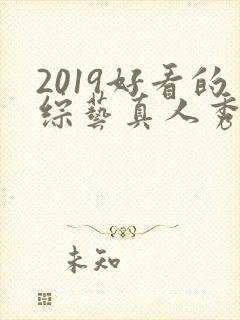 2019好看的
综藝真人秀
未知